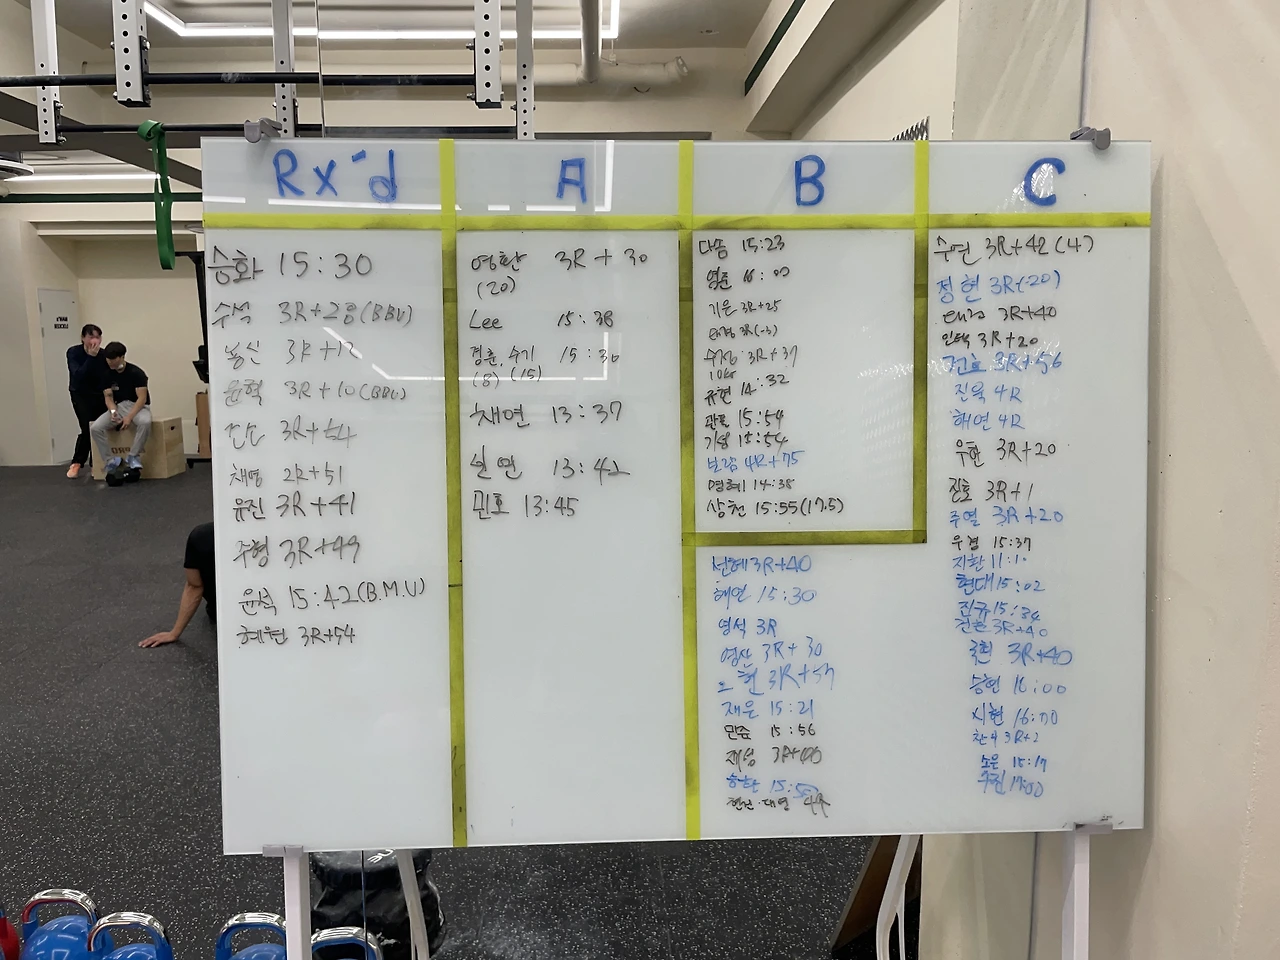 Rx'd
승화 15:30
수석 3R+28(BBU)
3R+12
윤혁 3R+10(BBU)
3R+54
채영 2R+51
유진 3R+41
주형 3R+49
윤석 15:42(B.M.U)
혜원 3R+54
A
영환 3R+30
(20)
Lee 15:38
경훈, 수기 15:30
(8) (15)
채연 13:37
13:42
민호 13:45
B
다솜 15:23
영훈 16:00
기은 3R+25
3R(-3)
수정 3R+37
유현 14:32
15:54
기성 15:54
보람 4R+75
명희 14:38
상천 15:55(17.5)
선혜 3R+40
해인 15:30
영석 3R
영산 3R+30
3R+57
재은 15:21
15:56
재성
15:50
C
수연 3R+42(4)
정현 3R(-20)
3R+40
민택 3R+20
진호 3R+56
진욱 4R
해연 4R
우현 3R+20
진호 3R+1
주열 3R+20
우겸 15:37
지환
현대 15:02
진규 15:34
3R+40
국현 3R+40
승현 16:00
시현 16:00
3R+2
소은 15:17
수진